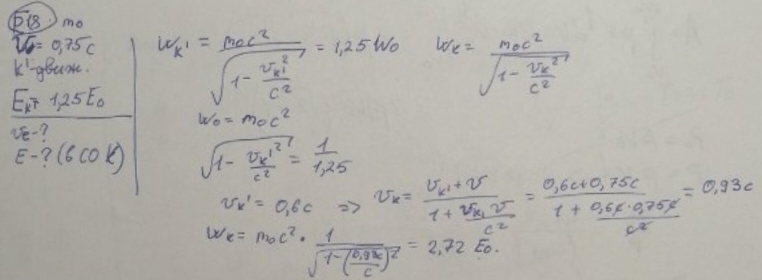 Б18. m₀
V = 0,75c
K'-движ.
E_K' = 1,25E₀
v_K-?
E-? (в СО K)
W_K' = m₀c² / √(1 - v_K'²/c²) = 1,25W₀   W_K = m₀c² / √(1 - v_K²/c²)
W₀ = m₀c²
√(1 - v_K'²/c²) = 1/1,25
v_K' = 0,6c => v_K = (v_K' + V) / (1 + v_K' V/c²) = (0,6c+0,75c) / (1 + 0,6c·0,75c/c²) = 0,93c
W_K = m₀c² · 1 / √(1-(0,93c/c)²) = 2,72 E₀.